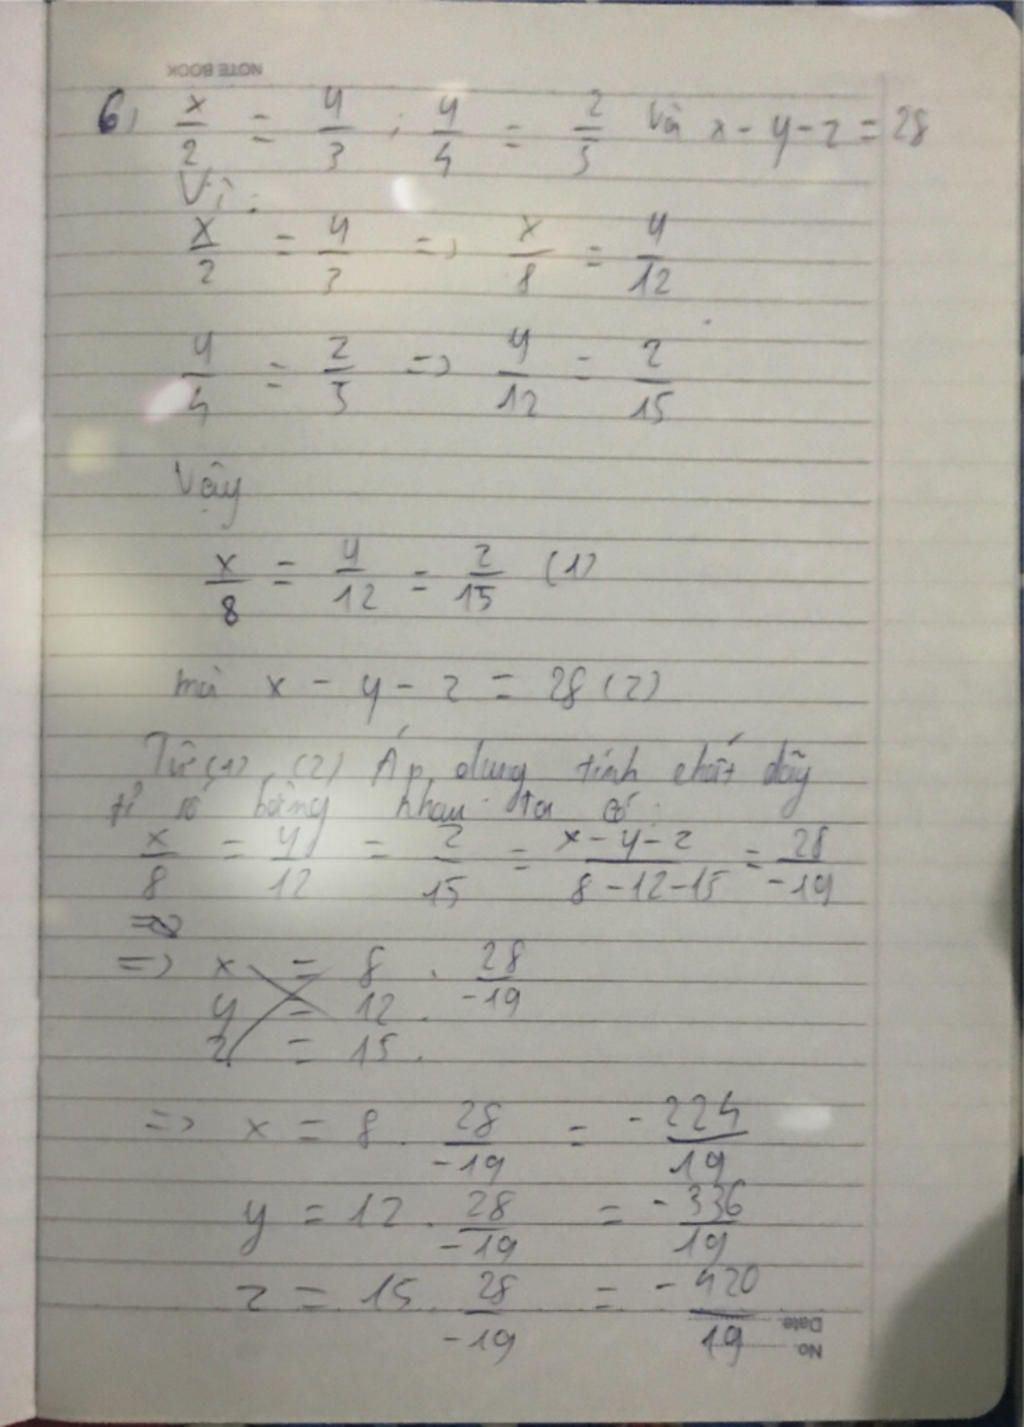 NOTE BOOK
6, x/2 = y/3 ; y/4 = z/5 và x - y - z = 28
Vì:
x/2 = y/3 => x/8 = y/12
y/4 = z/5 => y/12 = z/15
Vậy
x/8 = y/12 = z/15 (1)
mà x - y - z = 28 (2)
Từ (1), (2) Áp dụng tính chất dãy
tỉ số bằng nhau ta có:
x/8 = y/12 = z/15 = x-y-z/8-12-15 = 28/-19
=>
=> x = 8 . 28/-19
y = 12 .
z = 15 .
=> x = 8 . 28/-19 = -224/19
y = 12 . 28/-19 = -336/19
z = 15 . 28/-19 = -420/19
Date
No.